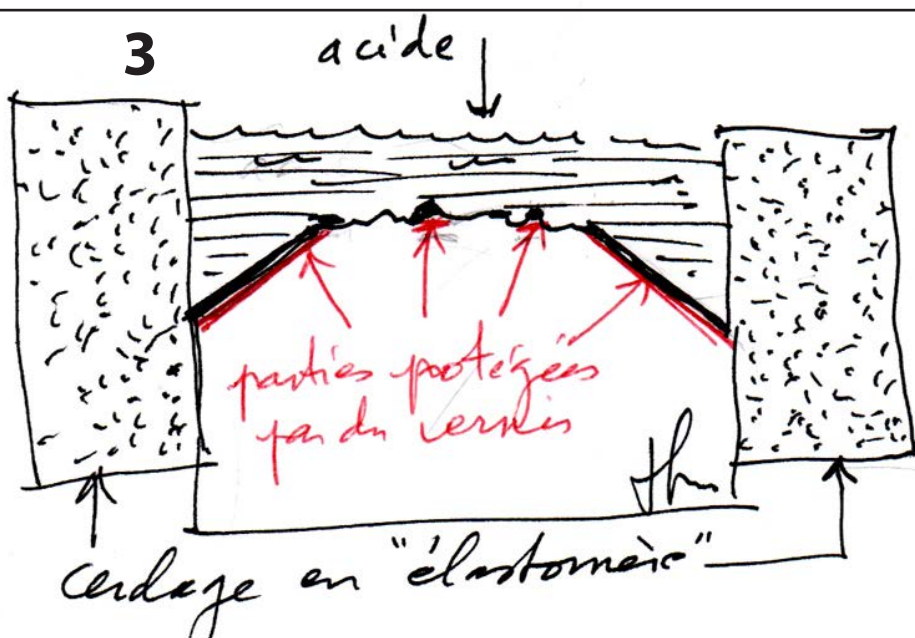 3
acide
parties protégées
par du vernis
cerclage en "élastomère"